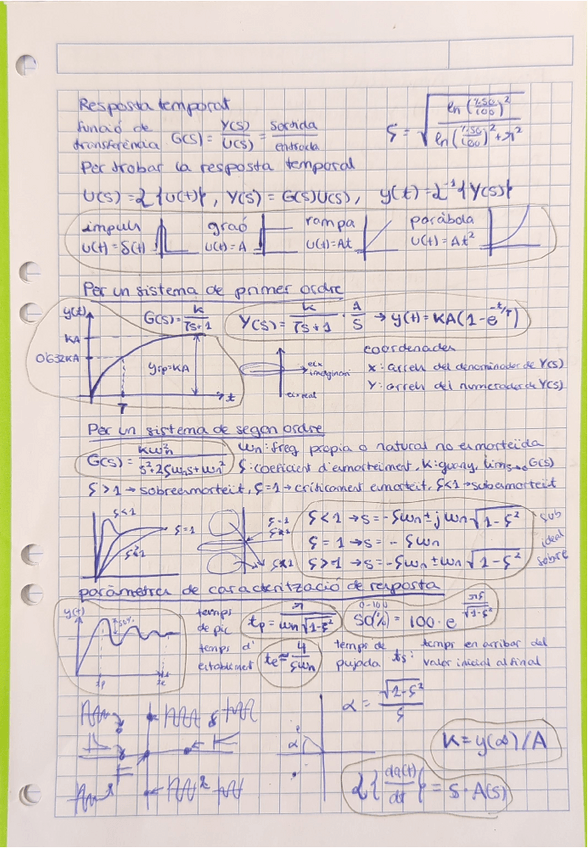 Resposta temporal
funció de transferència G(s) = Y(s)/U(s) = sortida/entrada
ξ = √(ln(%SO/100)² / (ln(%SO/100)² + π²))
Per trobar la resposta temporal
U(s) = L{U(t)}, Y(s) = G(s)U(s), y(t) = L⁻¹{Y(s)}
impuls graó rampa paràbola
U(t) = δ(t) U(t) = A U(t) = At U(t) = At²
Per un sistema de primer ordre
y(t) G(s) = K/(Ts+1) Y(s) = K/(Ts+1) · A/s → y(t) = KA(1-e^(-t/T))
KA
0'632KA
yrp=KA
T t
coordenades
X: arrels del denominador de Y(s)
Y: arrels del numerador de Y(s)
eix imaginari
eix real
Per un sistema de segon ordre
G(s) = Kωn²/(s²+2ξωns+ωn²) ωn: freq propia o natural no esmorteida
ξ: coeficient d'esmorteiment, K: guany, lim s→0 G(s)
ξ>1 → sobreesmorteit, ξ=1 → críticament esmorteit, ξ<1 → subesmorteit
ξ<1 ξ=1 ξ>1
ξ<1 → s = -ξωn ± jωn√(1-ξ²) sub
ξ=1 → s = -ξωn ideal
ξ>1 → s = -ξωn ± ωn√(1-ξ²) sobre
paràmetres de caracterització de resposta
y(t)
tp te
temps de pic tp = π/(ωn√(1-ξ²))
0-100
SO(%) = 100·e^(πξ/√(1-ξ²))
temps d'establiment te ≈ 4/(ξωn)
temps de pujada ts: temps en arribar del valor inicial al final
α = √(1-ξ²)/ξ
α
K = y(∞)/A
L{da(t)/dt} = s·A(s)